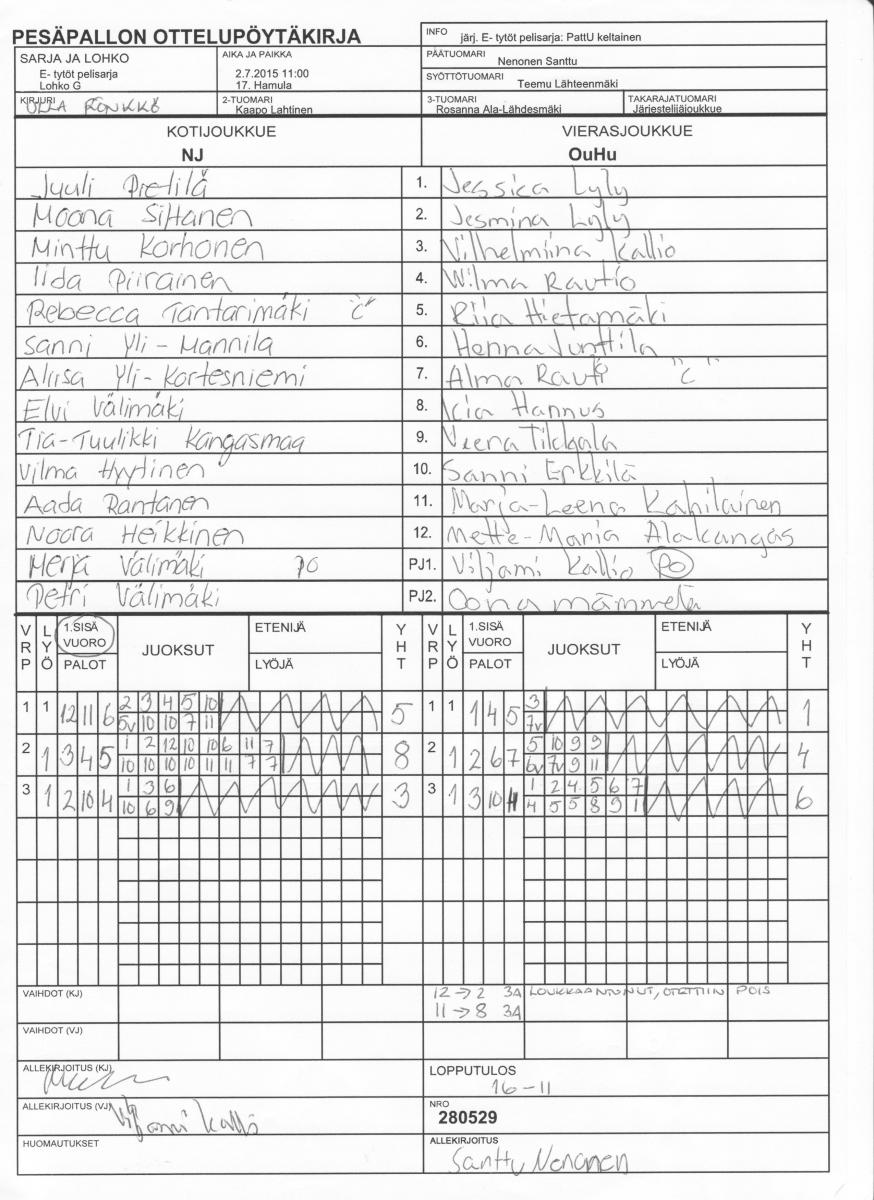 PESÄPALLON OTTELUPÖYTÄKIRJA
INFO järj. E- tytöt pelisarja: PattU keltainen
SARJA JA LOHKO
E- tytöt pelisarja
Lohko G
AIKA JA PAIKKA
2.7.2015 11:00
17. Hamula
PÄÄTUOMARI
Nenonen Santtu
SYÖTTÖTUOMARI
Teemu Lähteenmäki
KIRJURI
ULLA RÖNKKÖ
2-TUOMARI
Kaapo Lahtinen
3-TUOMARI
Rosanna Ala-Lähdesmäki
TAKARAJATUOMARI
Järjestelijäjoukkue
KOTIJOUKKUE
NJ
VIERASJOUKKUE
OuHu
Jyuli Pietilä 1. Jessica Lyly
Moona Siltanen 2. Jesmina Lyly
Minttu Korhonen 3. Vilhelmiina Kallio
Iida Piirainen 4. Wilma Rautio
Rebecca Tantarimäki "C" 5. Riia Hietamäki
Sanni Yli-Mannila 6. Henna Junttila
Aliisa Yli-Kortesniemi 7. Alma Rauti "C"
Elvi Välimäki 8. Icia Hannus
Tia-Tuulikki Kangasmaa 9. Veera Tikkala
Vilma Hyytinen 10. Sanni Erkkilä
Aada Rantanen 11. Marja-Leena Kahilainen
Noora Heikkinen 12. Mette-Maria Alakangas
Merja Välimäki PO PJ1. Viljami Kallio PO
Petri Välimäki PJ2. Oona mämmelä
VRP LYÖ 1.SISÄ VUORO PALOT JUOKSUT ETENIJÄ LYÖJÄ YHT VRP LYÖ 1.SISÄ VUORO PALOT JUOKSUT ETENIJÄ LYÖJÄ YHT
1 1 12 11 6 2 3 4 5 10 5 1 1 1 4 5 3 1
5v 10 10 7 11 7v
2 1 3 4 5 1 2 12 10 10 6 11 7 8 2 1 2 6 7 5 10 9 9 4
10 10 10 10 11 11 7 7 6v 7v 9 11
3 1 2 10 4 1 3 6 3 3 1 3 10 11 1 2 4 5 6 7 6
10 6 9 4 5 5 8 9 11
VAIHDOT (KJ) 12→2 3A LOUKKAANTUNUT, OTETTIIN POIS
11→8 3A
VAIHDOT (VJ)
ALLEKIRJOITUS (KJ)
LOPPUTULOS
16-11
ALLEKIRJOITUS (VJ) Viljami Kallio
NRO
280529
HUOMAUTUKSET
ALLEKIRJOITUS
Santtu Nenonen